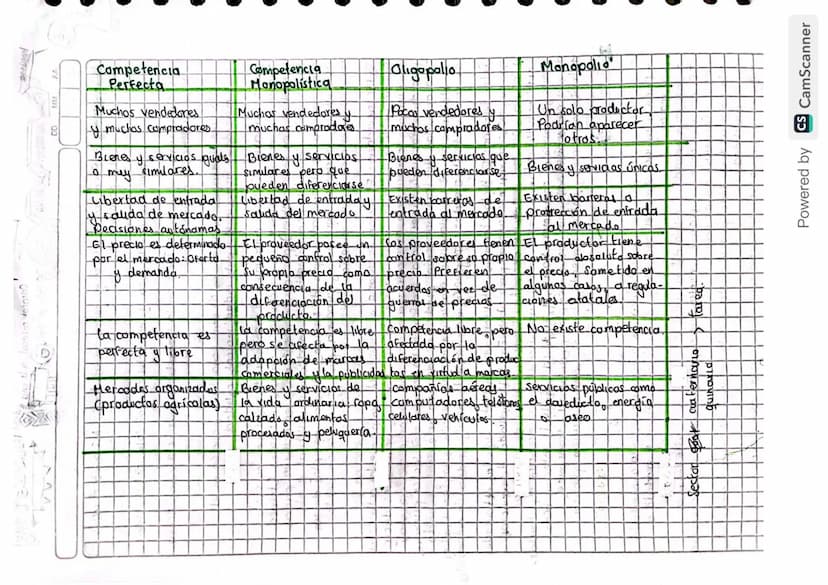 Competencia
Perfecta
Competencia
Monopolística
Oligopolio
Monopolio
Muchos vendedores
y muchos compradores
Muchos vendedores y
muchos compradores
Pocos vendedores y
muchos compradores
Un solo productor,
Podrían aparecer
otros.
Bienes y servicios iguals
o muy similares.
Bienes y servicios
similares pero que
pueden diferenciarse
Bienes y servicios que
pueden diferenciarse.
Bienes y servicios únicos.
Libertad de entrada
y salida de mercado,
Decisiones autónomas
Libertad de entrada y
salida del mercado
Existen barreras de
entrada al mercado
Existen barreras o
protección de entrada
al mercado
El precio es determinado
por el mercado: Oferta
y demanda.
El proveedor posee un
pequeño control sobre
su propio precio como
consecuencia de la
diferenciación del
producto.
Los proveedores tienen
control sobre su propio
precio. Prefieren
acuerdos en vez de
guerras de precios
El productor tiene
control absoluto sobre
el precio, sometido en
algunos casos, a regula-
ciones estatales.
La competencia es
perfecta y libre
La competencia es libre
pero se afecta por la
adopción de marcas
comerciales y la publicidad
Competencia libre, pero
afectada por la
diferenciación de produc
tos en virtud a marcas
No existe competencia.
Mercados organizados
(productos agrícolas)
Bienes y servicios de
la vida ordinaria: ropa,
calzado, alimentos
procesados y peluquería.
compañías aéreas,
computadores, teléfonos
celulares, vehículos.
servicios públicos como
el acueducto, energía
o aseo
Sector cuaternario > tarea.
quinario
Powered by CS CamScanner